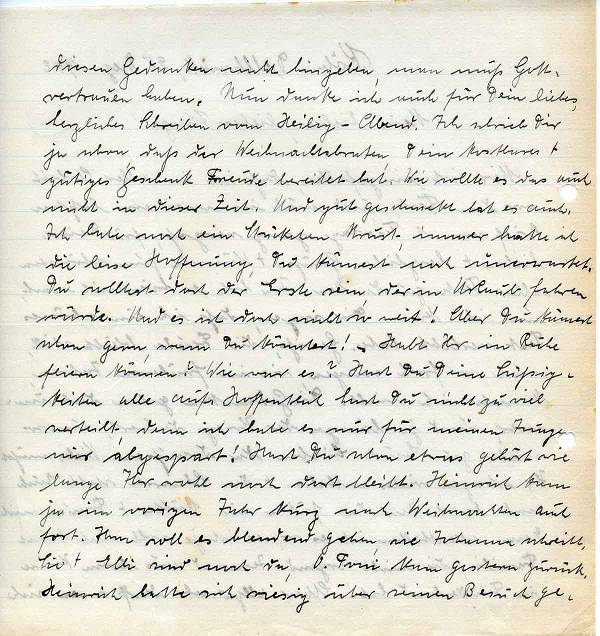 diesen Gedanken nicht hingeben, man muß Gott-
vertrauen haben. Nun danke ich auch für Dein liebes,
herzliches Schreiben vom Heilig-Abend. Ich schrieb Dir
ja schon daß der Weihnachtsbraten Dein kostbares +
gütiges Geschenk Freude bereitet hat. Wie sollte es das auch
nicht in dieser Zeit. Und gut geschmeckt hat es auch.
Ich habe noch ein Stückchen Brust, immer hatte ich
die leise Hoffnung, Du kämest noch unerwartet.
Du solltest doch der Erste sein, der in Urlaub fahren
würde. Und es ist doch nicht so weit! Aber Du kämest
schon gern, wenn Du könntest! – Habt Ihr in Ruhe
feiern können? Wie war es? Hast Du Deine Süßig-
keiten alle aufs Hoffentlich hast Du nicht zu viel
verteilt, denn ich habe es nur für meinen Junge
mir abgespart! Hast Du schon etwas gehört wie
lange Ihr wohl noch dort bleibt. Heinrich kam
ja im vorigen Jahr kurz nach Weihnachten auch
fort. Ihm soll es blendend gehen, wie Johanna schreibt,
Sie + Elli sind noch da, O. Toni kam gestern zurück.
Heinrich hatte sich riesig über seinen Besuch ge-